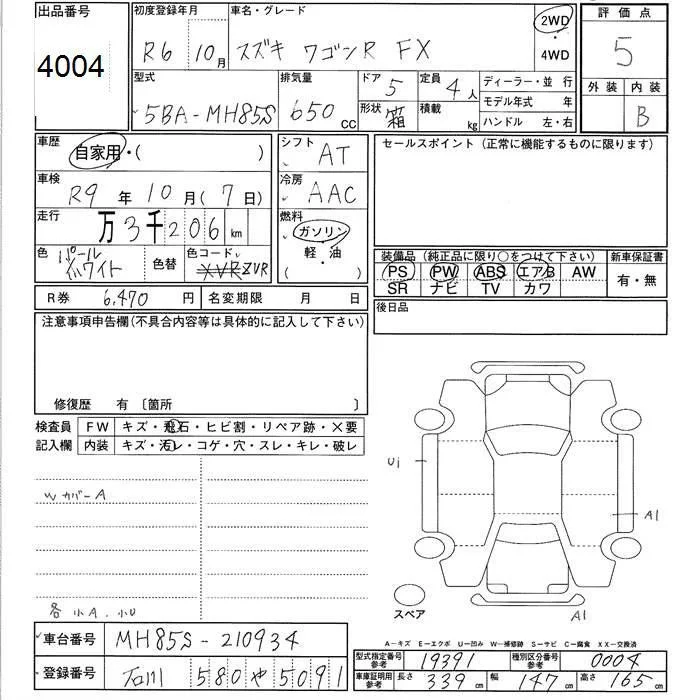 出品番号
4004
初度登録年月
R6 10月
車名・グレード
スズキ ワゴンR FX
2WD
・
4WD
評価点
5
外装 内装
B
型式
5BA-MH85S
排気量
650 CC
ドア 5
形状 箱
定員 4人
積載 kg
ディーラー・並行
モデル年式 年
ハンドル 左・右
車歴
自家用・( )
車検
R9年10月(7日)
走行
万3千206km
色
パールホワイト
色替
色コード
ZVR
シフト
AT
冷房
AAC
燃料
ガソリン
・
軽・油
( )
セールスポイント (正常に機能するものに限ります)
装備品 (純正品に限り○をつけて下さい)
PS PW ABS エアB AW
SR ナビ TV カワ
新車保証書
有・無
R券 6,470円
名変期限 月 日
後日品
注意事項申告欄(不具合内容等は具体的に記入して下さい)
修復歴 有 〔箇所 〕
検査員
記入欄
FW キズ・飛石・ヒビ割・リペア跡・×要
内装 キズ・汚レ・コゲ・穴・スレ・キレ・破レ
Wカバー A
各小A.小U
U1
A1
A1
スペア
A−キズ E−エクボ U−凹み W−補修跡 S−サビ C−腐食 XX−交換済
車台番号 MH85S-210934
登録番号 石川 580 や 5091
型式指定番号
参考
19391
種別区分番号
参考
0004
車庫証明用
参考
長さ 339cm
幅 147cm
高さ 165cm